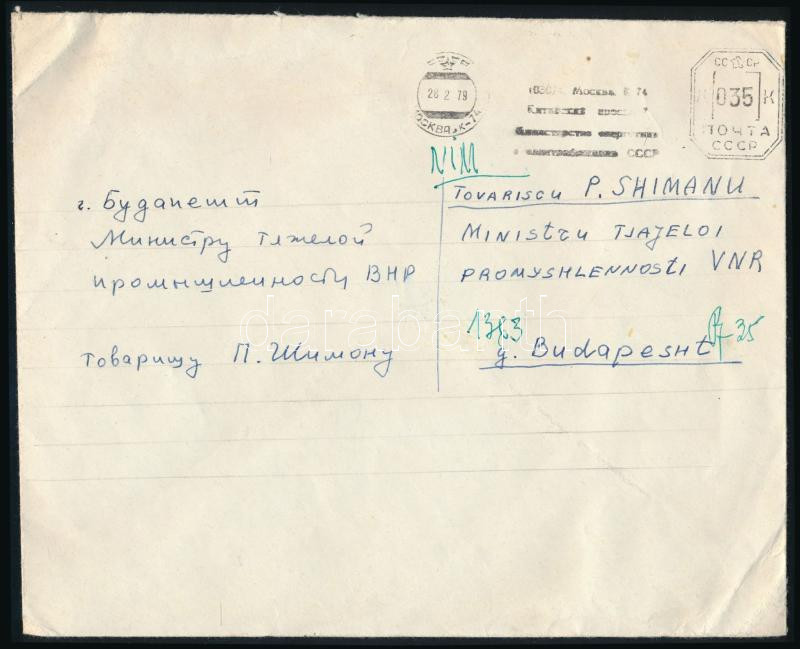 28 2 79
МОСКВА К-74
103074 Москва К 74
Китайский проезд 7
Министерство энергетики
и электрификации СССР
СССР
035 К
ПОЧТА
СССР
NIM
г. Будапешт
Министру тяжелой
промышленности ВНР
товарищу П. Шимону
TOVARISCU P. SHIMANU
MINISTRU TJAJELOI
PROMYSHLENNOSTI VNR
1383
35
g. BUDAPESHT
darabanth